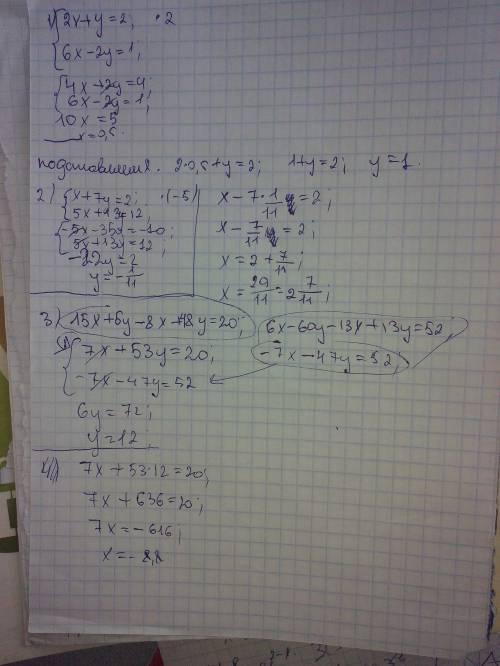 1) { 2x+y=2; ·2
{ 6x-2y=1;
{ 4x+2y=4;
{ 6x-2y=1;
10x=5
x=0,5.
подставляем. 2·0,5+y=2; 1+y=2; y=1.
2) { x+7y=2; ·(-5)
{ 5x+13y=12;
{ -5x-35y=-10;
{ 5x+13y=12;
-22y=2
y=-1/11
x-7·1/11=2;
x-7/11=2;
x=2+7/11;
x=29/11=2 7/11;
3) 15x+5y-8x+48y=20;
6x-60y-13x+13y=52
-7x-47y=52,
{ 7x+53y=20;
{ -7x-47y=52
6y=72;
y=12.
4) 7x+53·12=20;
7x+636=20;
7x=-616;
x=-